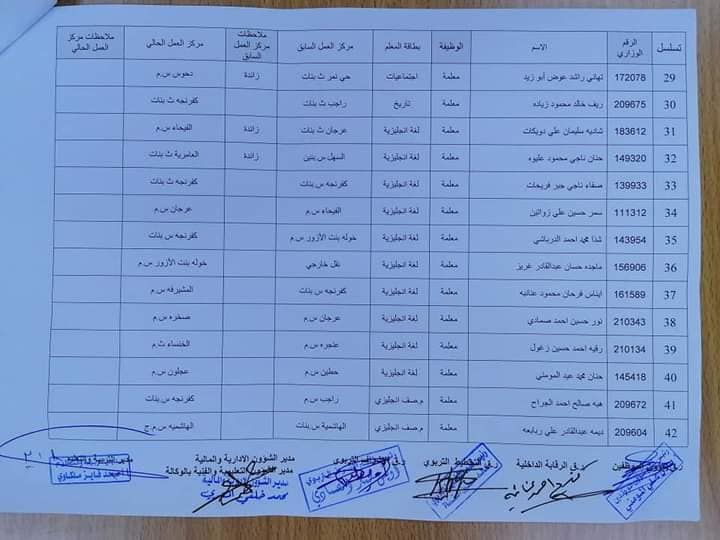 تسلسل | الرقم الوزاري | الاسم | الوظيفة | بطاقة المعلم | مركز العمل السابق | ملاحظات مركز العمل السابق | مركز العمل الحالي | ملاحظات مركز العمل الحالي
29 | 172078 | تهاني راشد عوض أبو زيد | معلمة | اجتماعيات | حي نمر ث بنات | زائدة | دحوس س.م
30 | 209675 | ريف خالد محمود زياده | معلمة | تاريخ | راجب ث بنات | كفرنجه ث بنات
31 | 183612 | شاديه سليمان علي دويكات | معلمة | لغة انجليزية | عرجان ث بنات | زائدة | الفيحاء س.م
32 | 149320 | حنان ناجي محمود عليوه | معلمة | لغة انجليزية | السهل س.بنين | زائدة | العامرية ث بنات
33 | 139933 | صفاء ناجي جبر فريحات | معلمة | لغة انجليزية | كفرنجه س.بنات | كفرنجه ث بنات
34 | 111312 | سمر حسين علي زواتين | معلمة | لغة انجليزية | الفيحاء س.م | عرجان س.م
35 | 143954 | شذا محمد احمد الدرباشي | معلمة | لغة انجليزية | خوله بنت الأزور س.م | كفرنجه س.بنات
36 | 156906 | ماجده حسان عبدالقادر غريز | معلمة | لغة انجليزية | نقل خارجي | خوله بنت الأزور س.م
37 | 161589 | ايناس فرحان محمود عنانبه | معلمة | لغة انجليزية | كفرنجه س.بنات | المشيرفه س.م
38 | 210343 | نور حسين احمد صمادي | معلمة | لغة انجليزية | عرجان س.م | صخره س.م
39 | 210134 | رقيه احمد حسين زغول | معلمة | لغة انجليزية | عنجره س.م | الخنساء ث.م
40 | 145418 | حنان محمد عبد المومني | معلمة | لغة انجليزية | حطين س.م | عجلون س.م
41 | 209672 | هبه صالح احمد الجراح | معلمة | م.صف انجليزي | راجب س.م | كفرنجه س.بنات
42 | 209604 | ديمه عبدالقادر علي ربابعه | معلمة | م.صف انجليزي | الهاشمية س.بنات | الهاشميه س.م.ج
ر.ق الرقابة الداخلية
ر.ق التخطيط التربوي
مدير الشؤون الادارية والمالية
مدير الشؤون التعليمية والفنية بالوكالة